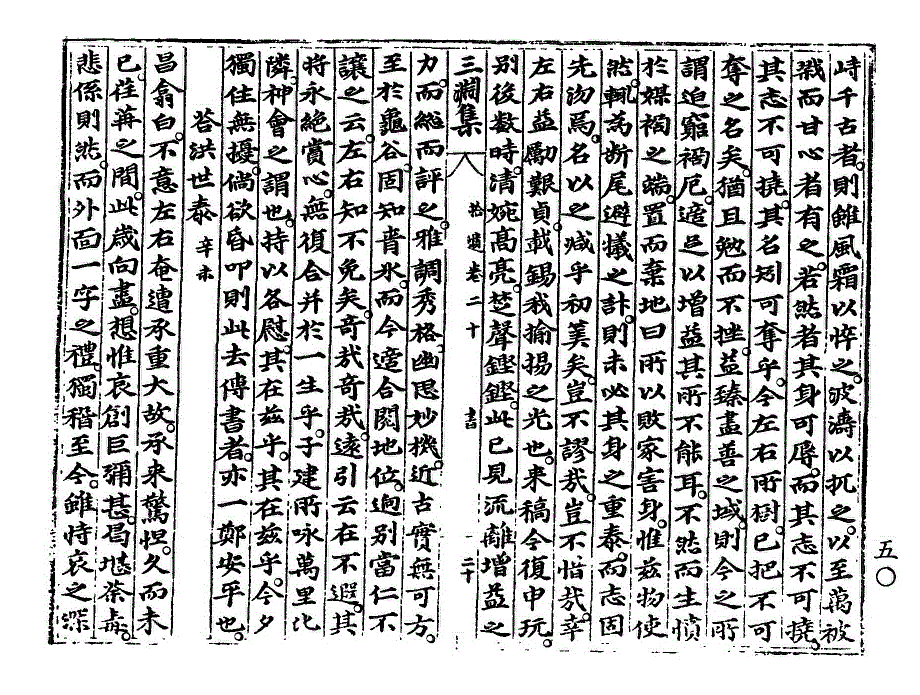 峙千古者則雖風霜以悴之波濤以扤之以至萬被
戮而甘心者有之若然者其身可辱而其志不可撓
其志不可撓其名矧可奪乎今左右所樹已把不可
奪之名矣猶且勉而不挫益臻盡善之域則今之所
謂迫窮禍厄適足以增益其所不能耳不然而生憤
於媒禍之端置而棄地曰所以敗家害身惟玆物使
然輒爲斷尾避犧之計則未必其身之重泰而志固
先沕焉名以之減乎初美矣豈不謬哉豈不惜哉幸
左右益勵艱貞載錫我揄揚之光也來稿今復申玩
別後數時淸婉高亮楚聲鏗鏗此已見流離增益之
三淵集
拾遺卷二十
書
二十
力而総而評之雅調秀格幽思妙機近古實無可方
至於龜谷固知膏氷而今適合閱地位逈別當仁不
讓之云左右知不免矣奇哉奇哉遠引云在不遐其
將永絶賞心無復合并於一生乎子建所咏萬里比
隣神會之謂也持以各慰其在兹乎其在兹乎今夕
獨住無擾倘欲昏叩則此去傳書者亦一鄭安平也
答洪世泰 辛未
昌翕白不意左右奄遭承重大故承來驚怛久而未
已荏苒之間此歲向盡想惟哀創巨彌甚曷堪荼毒
悲係則然而外面一字之禮獨稽至今雖恃哀之深
五〇